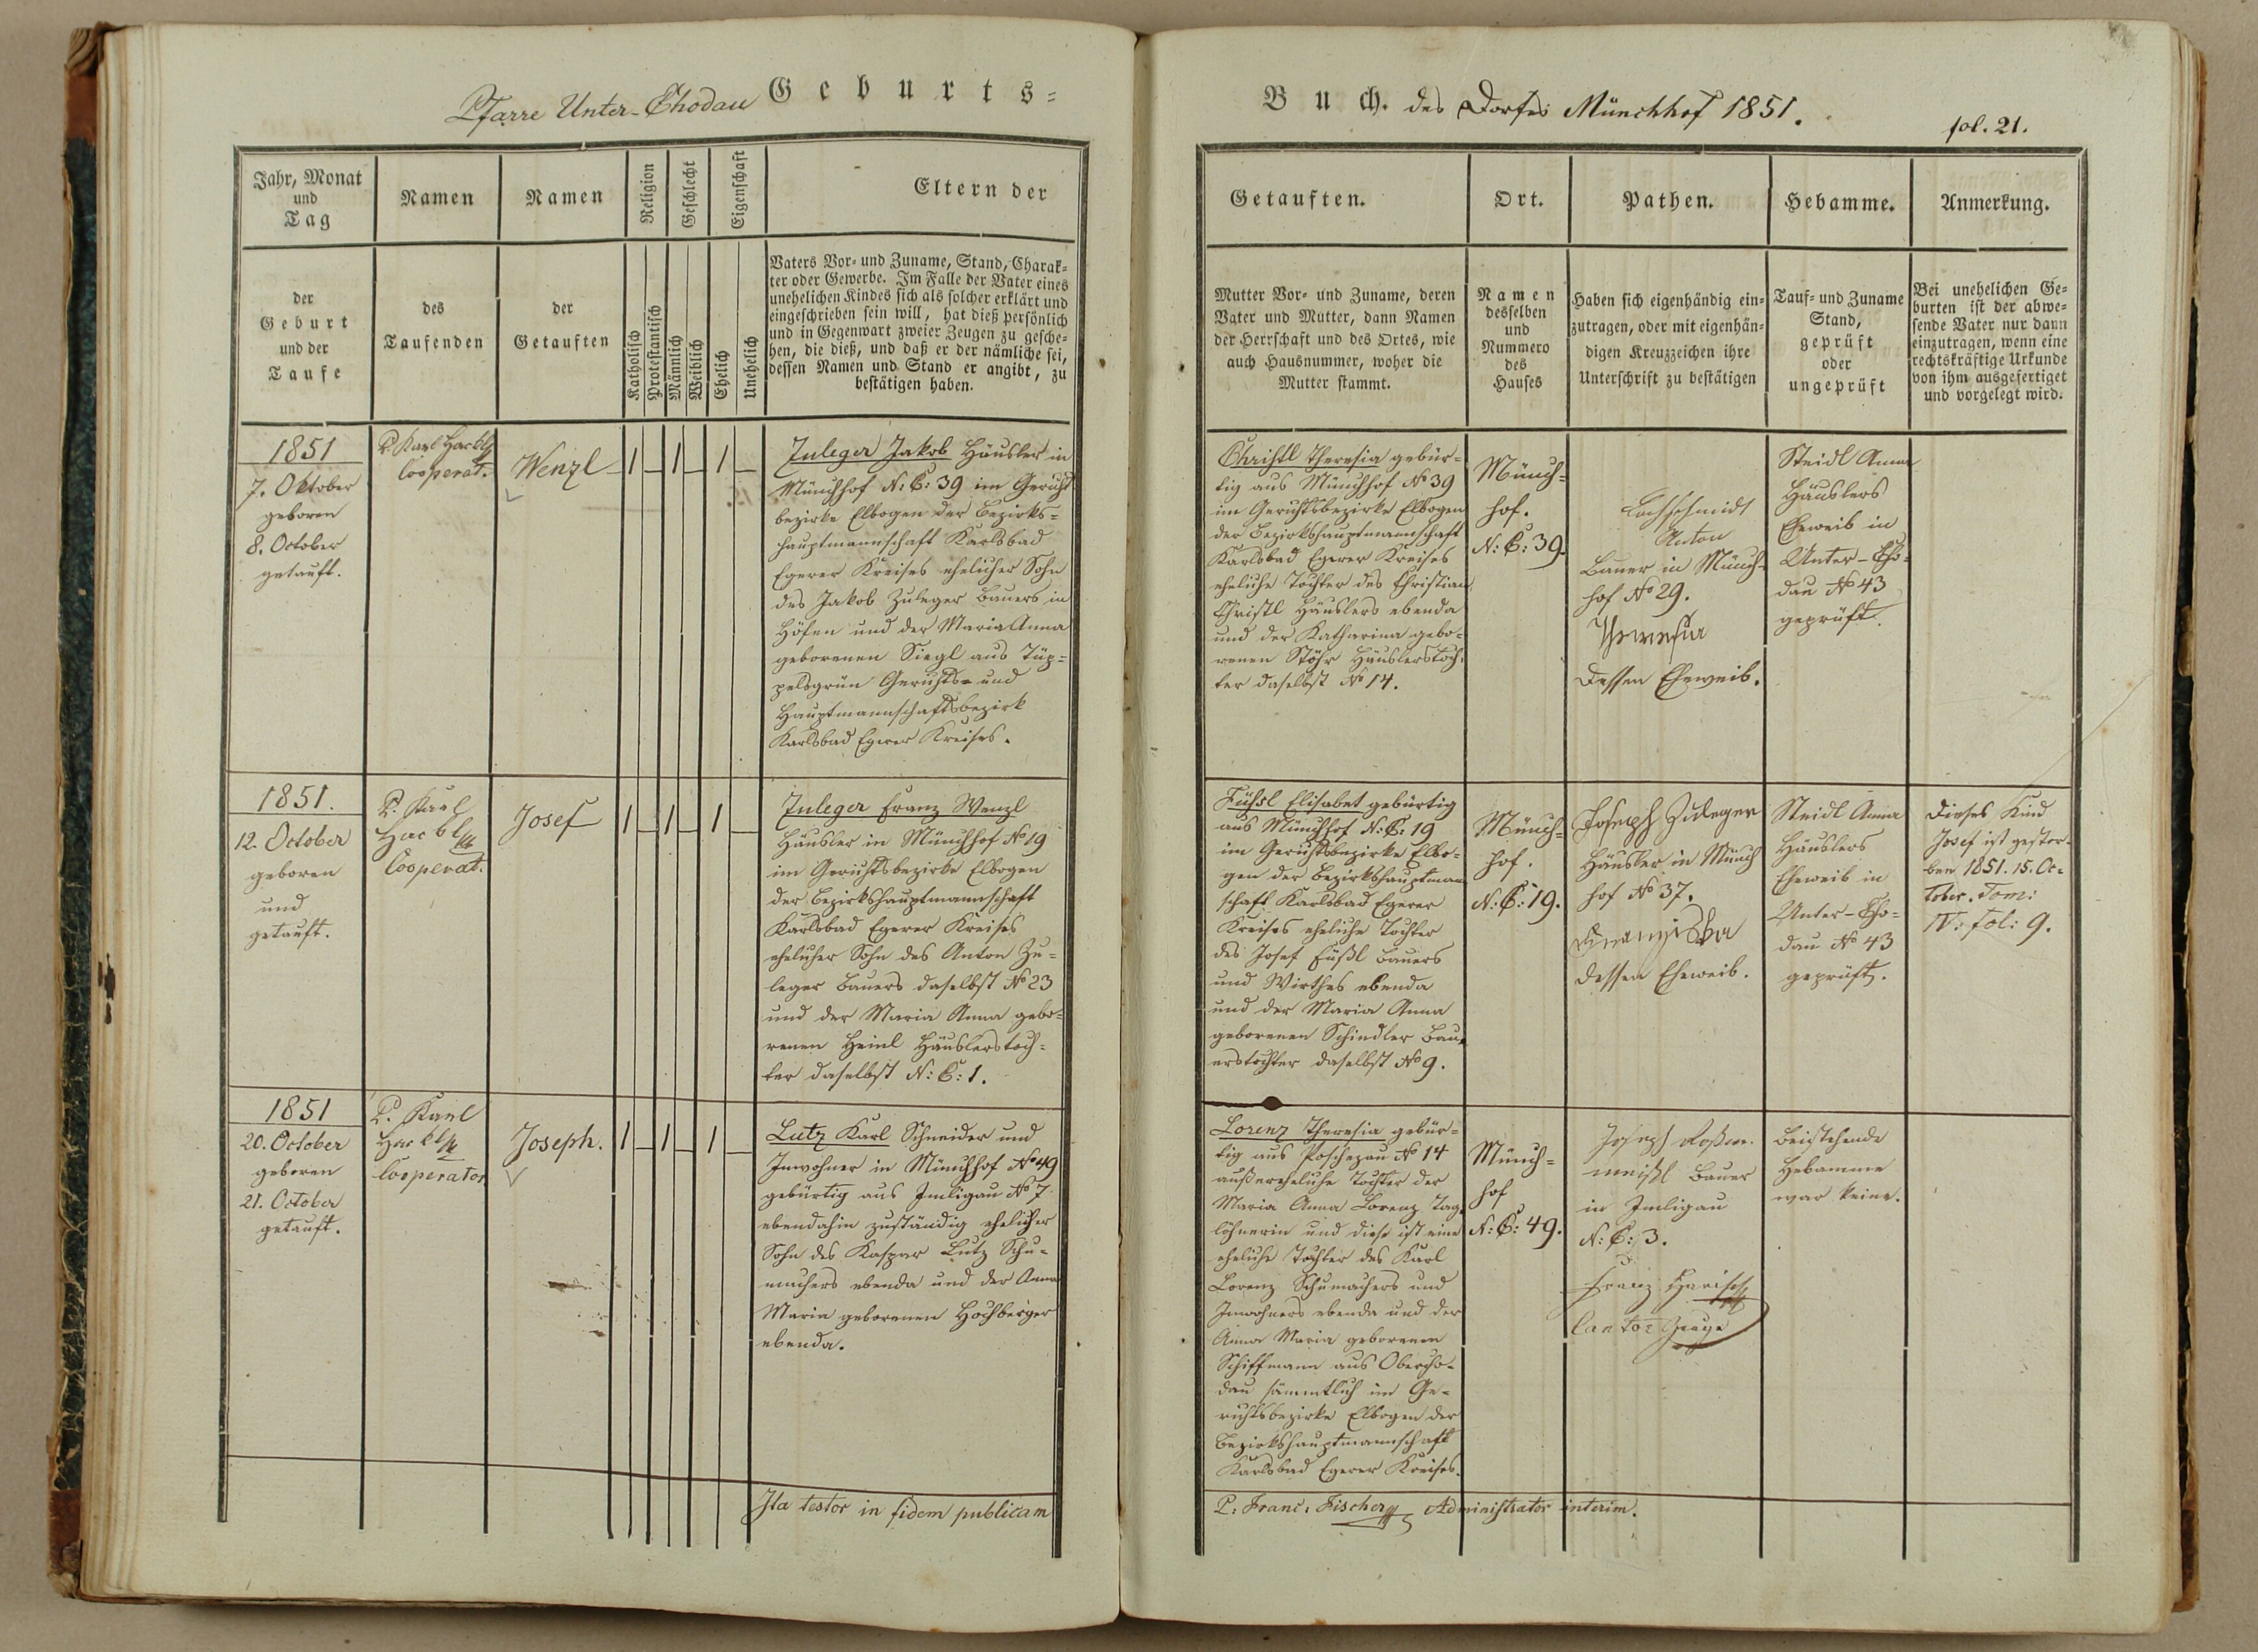 Pfarre Unter-Chodau Geburts=
Jahr, Monat
und
Tag
Namen
Namen
Religion
Geschlecht
Eigenschaft
Eltern der
der
Geburt
und der
Taufe
des
Taufenden
der
Getauften
Katholisch
Protestantisch
Männlich
Weiblich
Ehelich
Unehelich
Vaters Vor= und Zuname, Stand, Charak=
ter oder Gewerbe. Im Falle der Vater eines
unehelichen Kindes sich als solcher erklärt und
eingeschrieben sein will, hat dieß persönlich
und in Gegenwart zweier Zeugen zu gesche=
hen, die dieß, und daß er der nämliche sei,
dessen Namen und Stand er angibt, zu
bestätigen haben.
1851
7. Oktober
geboren
8. October
getauft.
P. Karl Hackl
Cooperat.
Wenzl
1 — 1 — 1 —
Zuleger Jakob Häusler in
Münchhof N: C: 39 im Gerichts
bezirke Elbogen der Bezirks=
hauptmannschaft Karlsbad
Egerer Kreises ehelicher Sohn
des Jakob Zuleger Bauers in
Höfen und der Maria Anna
geborenen Siegl aus Tüp=
pelsgrün Gerichts= und
Hauptmannschaftsbezirk
Karlsbad Egerer Kreises.
1851.
12. October
geboren
und
getauft.
P. Karl
Hackl
Cooperat.
Josef
1 — 1 — 1 —
Zuleger Franz Wenzl
Häusler in Münchhof No 19
im Gerichtsbezirke Elbogen
der Bezirkshauptmannschaft
Karlsbad Egerer Kreises
ehelicher Sohn des Anton Zu=
leger Bauers daselbst No 23
und der Maria Anna gebo=
renen Heinl Häuslerstoch=
ter daselbst N: C: 1.
1851
20. October
geboren
21. October
getauft.
P. Karl
Hackl
Cooperator
Joseph.
1 — 1 — 1 —
Lutz Karl Schneider und
Inwohner in Münchhof No 49
gebürtig aus Imligau No 7
ebendahin zuständig ehelicher
Sohn des Kaspar Lutz Schu=
machers ebenda und der Anna
Maria geborenen Hochberger
ebenda.
Ita testor in fidem publicam
Buch. des Dorfes Münchhof 1851.
fol. 21.
Getauften.
Ort.
Pathen.
Hebamme.
Anmerkung.
Mutter Vor= und Zuname, deren
Vater und Mutter, dann Namen
der Herrschaft und des Ortes, wie
auch Hausnummer, woher die
Mutter stammt.
Namen
desselben
und
Nummero
des
Hauses
Haben sich eigenhändig ein=
zutragen, oder mit eigenhän=
digen Kreuzzeichen ihre
Unterschrift zu bestätigen
Tauf= und Zuname
Stand,
geprüft
oder
ungeprüft
Bei unehelichen Ge=
burten ist der abwe=
sende Vater nur dann
einzutragen, wenn eine
rechtskräftige Urkunde
von ihm ausgefertiget
und vorgelegt wird.
Christl Theresia gebür=
tig aus Münchhof No 39
im Gerichtsbezirke Elbogen
der Bezirkshauptmannschaft
Karlsbad Egerer Kreises
eheliche Tochter des Christian
Christl Häuslers ebenda
und der Katharina gebo=
renen Stöhr Häuslerstoch=
ter daselbst No 14.
Münch=
hof.
N: C: 39.
Lochschmidt
Anton
Bauer in Münch=
hof No 29.
Theresia
dessen Eheweib.
Steidl Anna
Häuslers
Eheweib in
Unter-Cho=
dau No 43
geprüft.
Füßl Elisabet gebürtig
aus Münchhof N: C: 19
im Gerichtsbezirke Elbo=
gen der Bezirkshauptmann
schaft Karlsbad Egerer
Kreises eheliche Tochter
des Josef Füßl Bauers
und Wirthes ebenda
und der Maria Anna
geborenen Schindler Bau=
erstochter daselbst No 9.
Münch=
hof.
N: C: 19.
Joseph Zuleger
Häusler in Münch
hof No 37.
dessen Eheweib.
Steidl Anna
Häuslers
Eheweib in
Unter-Cho=
dau No 43
geprüft.
Dieses Kind
Josef ist gestor=
ben 1851. 15. Oc=
tober. Tom:
IV: fol: 9.
Lorenz Theresia gebür=
tig aus Poschezau No 14
außereheliche Tochter der
Maria Anna Lorenz Tag=
löhnerin und diese ist eine
eheliche Tochter des Karl
Lorenz Schumachers und
Inwohners ebenda und der
Anna Maria geborenen
Schiffmann aus Obercho=
dau sämmtlich im Ge=
richtsbezirke Elbogen der
Bezirkshauptmannschaft
Karlsbad Egerer Kreises.
Münch=
hof
N: C: 49.
Joseph
Bauer
in Imligau
N: C: 3.
Franz Harisch
Cantor Zeuge
Beistehende
Hebamme
war keine.
P: Franc: Fischer Administrator interim.